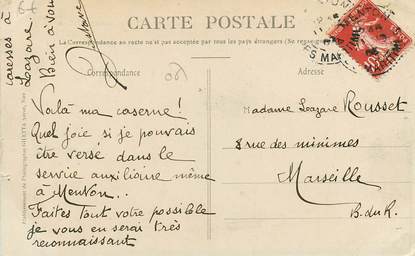 CARTE POSTALE
La Correspondance au recto n'est pas acceptée par tous les pays étrangers
Correspondance
Adresse
Voilà ma caserne !
Quel joie si je pouvais
être versé dans le
service auxilioire même
à Menton..
Faites tout votre possible
je vous en serai très
reconnaissant
caresses à
Lazare.
Bien à vous
Madame Lazare Rousset
8 rue des minimes
Marseille
B. du R.